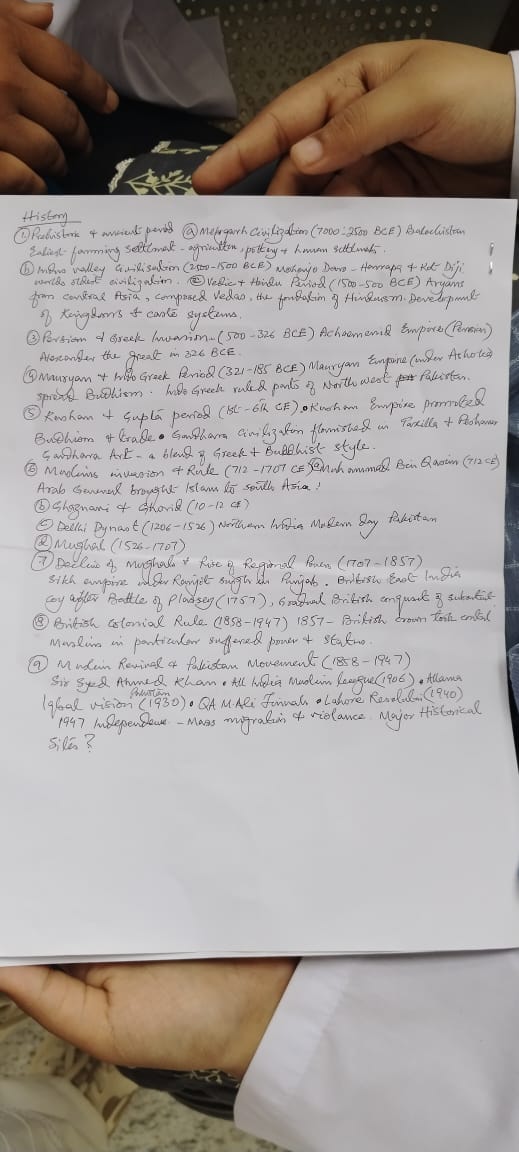 History
① Prehistoric & ancient period ⓐ Mehrgarh Civilization (7000-2500 BCE) Balochistan
Earliest farming settlement - agriculture, pottery & human settlements.
ⓑ Indus valley Civilisation (2500-1500 BCE) Mohenjo Daro - Harrapa & Kot Diji
worlds oldest civilization. ⓒ Vedic & Hindu Period (1500-500 BCE) Aryans
from central Asia, composed Vedas, the foundation of Hinduism. Development
of Kingdoms & caste systems.
③ Persian & Greek Invasions (500-326 BCE) Achaemenid Empire (Persian)
Alexander the Great in 326 BCE.
④ Mauryan & Indo Greek Period (321-185 BCE) Mauryan Empire (under Ashoka)
spread Buddhism. Indo Greek ruled parts of North west Pakistan.
⑤ Kushan & Gupta period (1st-6th CE) • Kushan Empire promoted
Buddhism & trade • Gandhara Civilization flourished in Taxilla & Peshawar
Gandhara Art - a blend of Greek & Buddhist style.
⑥ Muslims invasion & Rule (712-1707 CE) ⓐ Muhammad Bin Qasim (712 CE)
Arab General brought Islam to South Asia!
ⓑ Ghaznavi & Ghorid (10-12 CE)
ⓒ Delhi Dynast (1206-1526) Northern India Modern day Pakistan
ⓓ Mughal (1526-1707)
⑦ Decline of Mughals & Rise of Regional Power (1707-1857)
Sikh empire under Ranjit Singh in Punjab. British East India
Coy after Battle of Plassey (1757), Gradual British conquest of subcontinent
⑧ British Colonial Rule (1858-1947) 1857- British crown took control
Muslims in particular suffered power & status.
⑨ Muslim Revival & Pakistan Movement (1858-1947)
Sir Syed Ahmed Khan • All India Muslim League (1906) • Allama
Iqbal vision Pakistan (1930) • QA M. Ali Jinnah • Lahore Resolution (1940)
1947 Independence - Mass migration & violance. Major Historical
Sites?